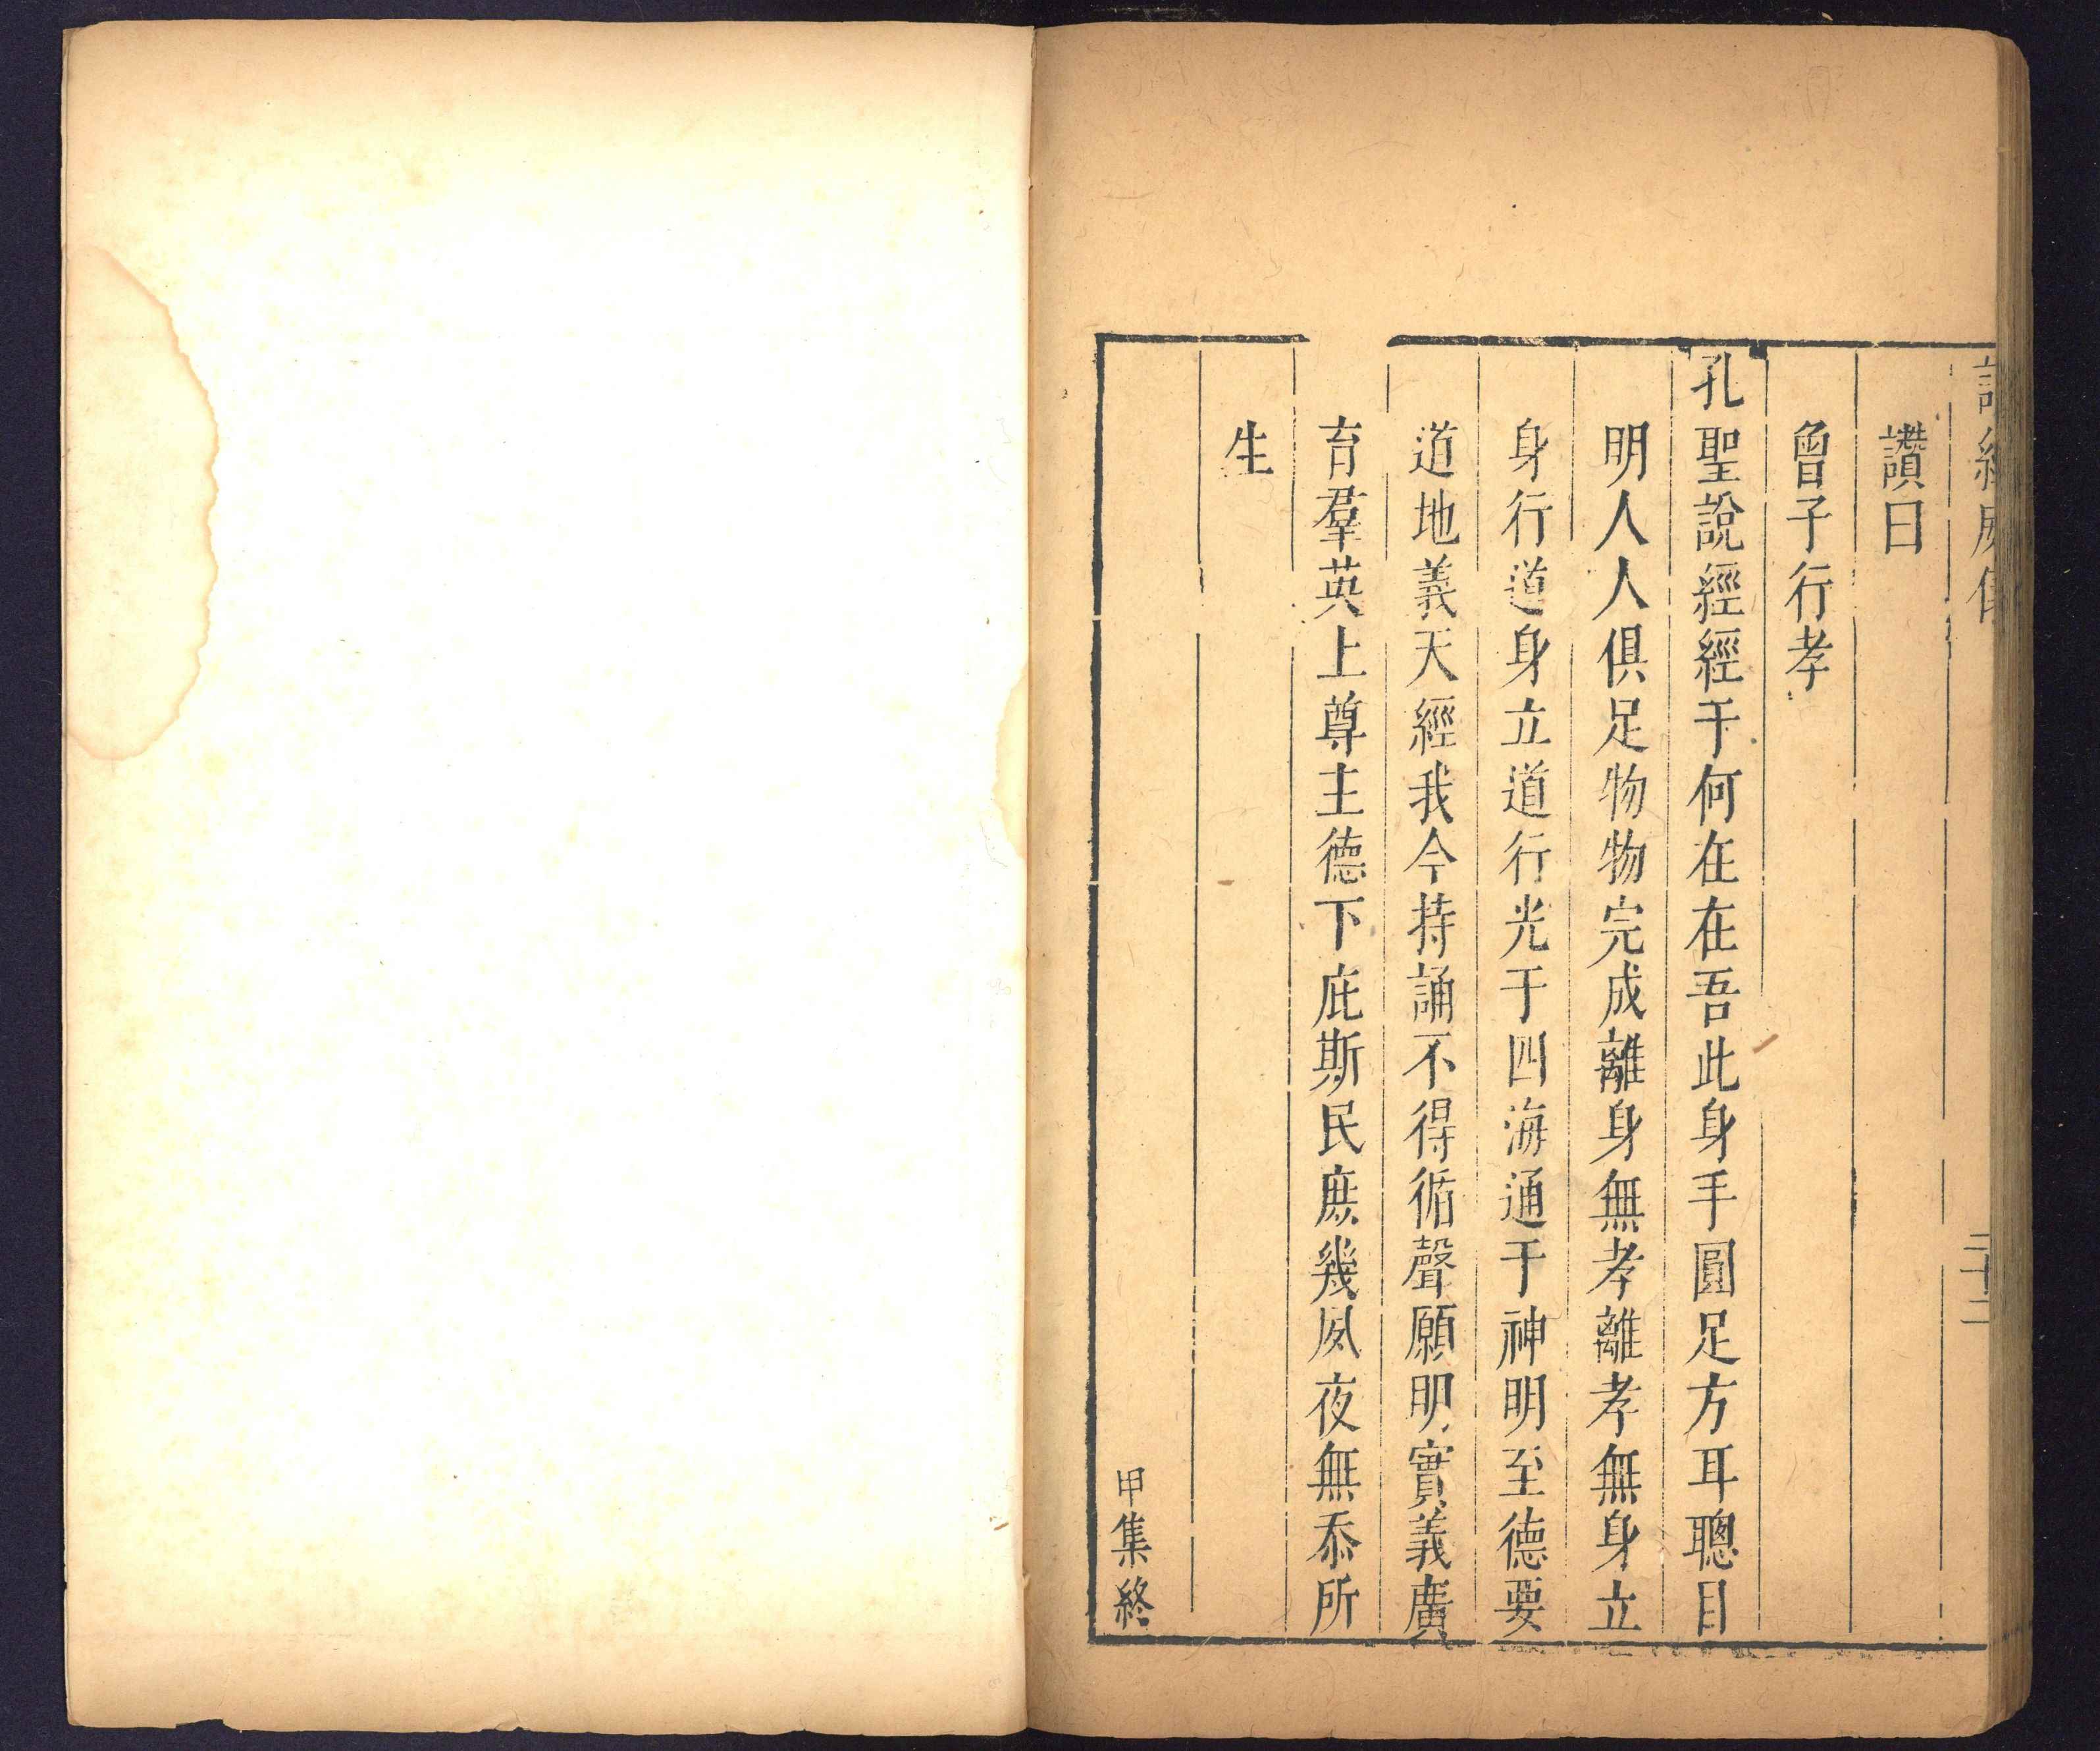 讚曰
曾子行孝
孔聖說經經于何在在吾此身手圓足方耳聰目
明人人俱足物物完成離身無孝離孝無身立
身行道身立道行光于四海通于神明至德要
道地義天經我今持誦不得循聲願明實義廣
育羣英上尊主德下庇斯民庶幾夙夜無忝所
生
甲集終